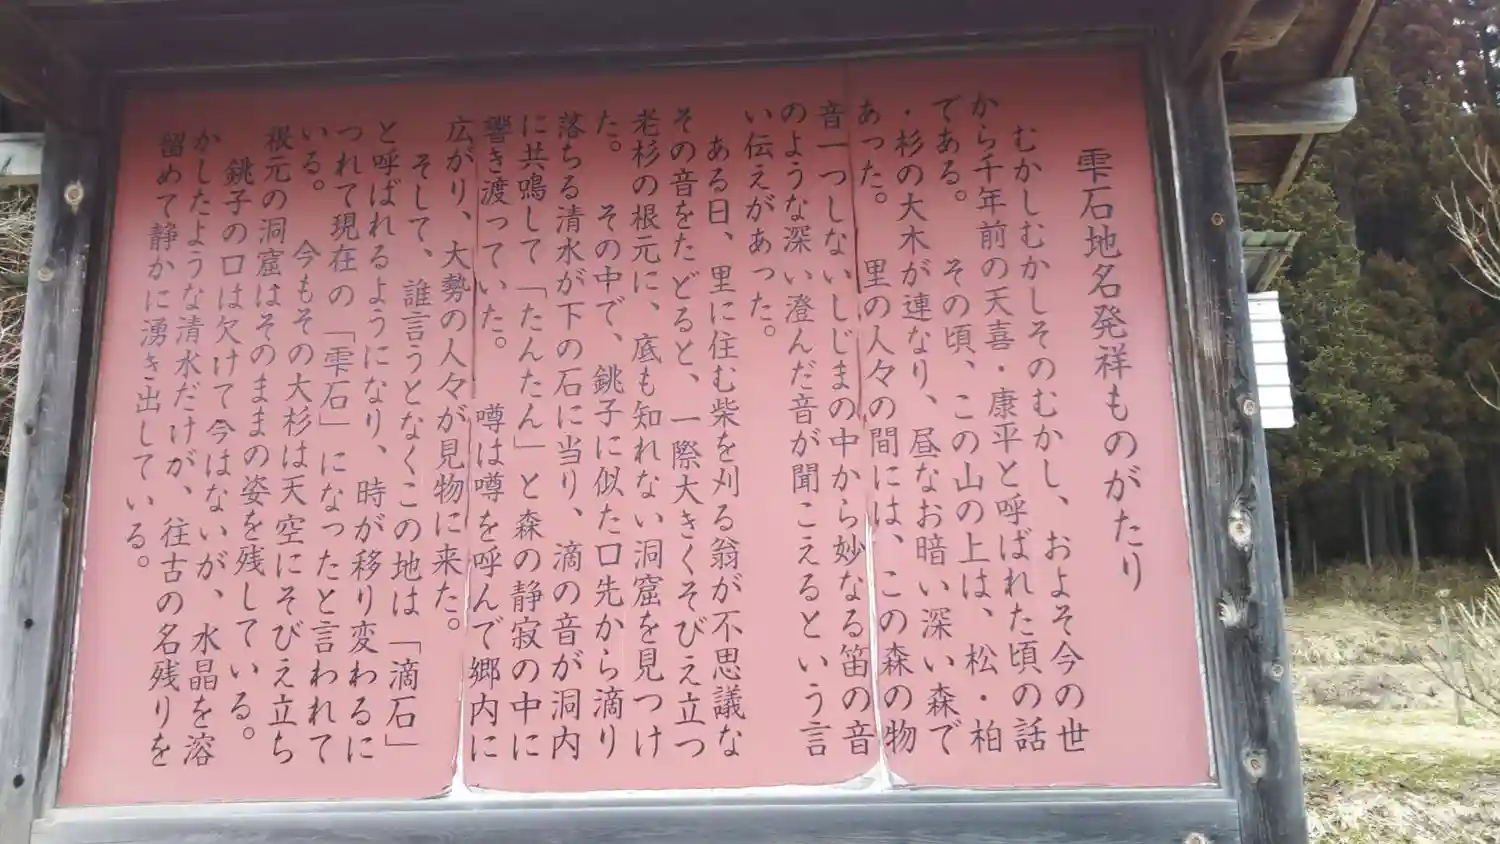 雫石地名発祥ものがたり
むかしむかしそのむかし、およそ今の世
から千年前の天喜・康平と呼ばれた頃の話
である。その頃、この山の上は、松・柏
・杉の大木が連なり、昼なお暗い深い森で
あった。里の人々の間には、この森の物
音一つしないしじまの中から妙なる笛の音
のような深い澄んだ音が聞こえるという言
い伝えがあった。
ある日、里に住む柴を刈る翁が不思議な
その音をたどると、一際大きくそびえ立つ
老杉の根元に、底も知れない洞窟を見つけ
た。その中で、銚子に似た口先から滴り
落ちる清水が下の石に当り、滴の音が洞内
に共鳴して「たんたん」と森の静寂の中に
響き渡っていた。噂は噂を呼んで郷内に
広がり、大勢の人々が見物に来た。
そして、誰言うとなくこの地は「滴石」
と呼ばれるようになり、時が移り変わるに
つれて現在の「雫石」になったと言われて
いる。今もその大杉は天空にそびえ立ち
根元の洞窟はそのままの姿を残している。
銚子の口は欠けて今はないが、水晶を溶
かしたような清水だけが、往古の名残りを
留めて静かに湧き出している。